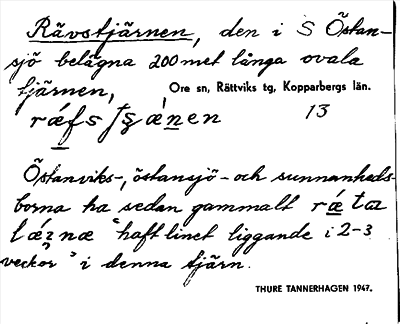 Rävstjärnen, den i S Östan-
sjö belägna 200 met långa ovala
tjärnen,
Ore sn, Rättviks tg, Kopparbergs län.
13
Östanviks-, östansjö- och sunnanheds-
borna ha sedan gammalt
"haft linet liggande i 2-3
veckor" i denna tjärn.
THURE TANNERHAGEN 1947.